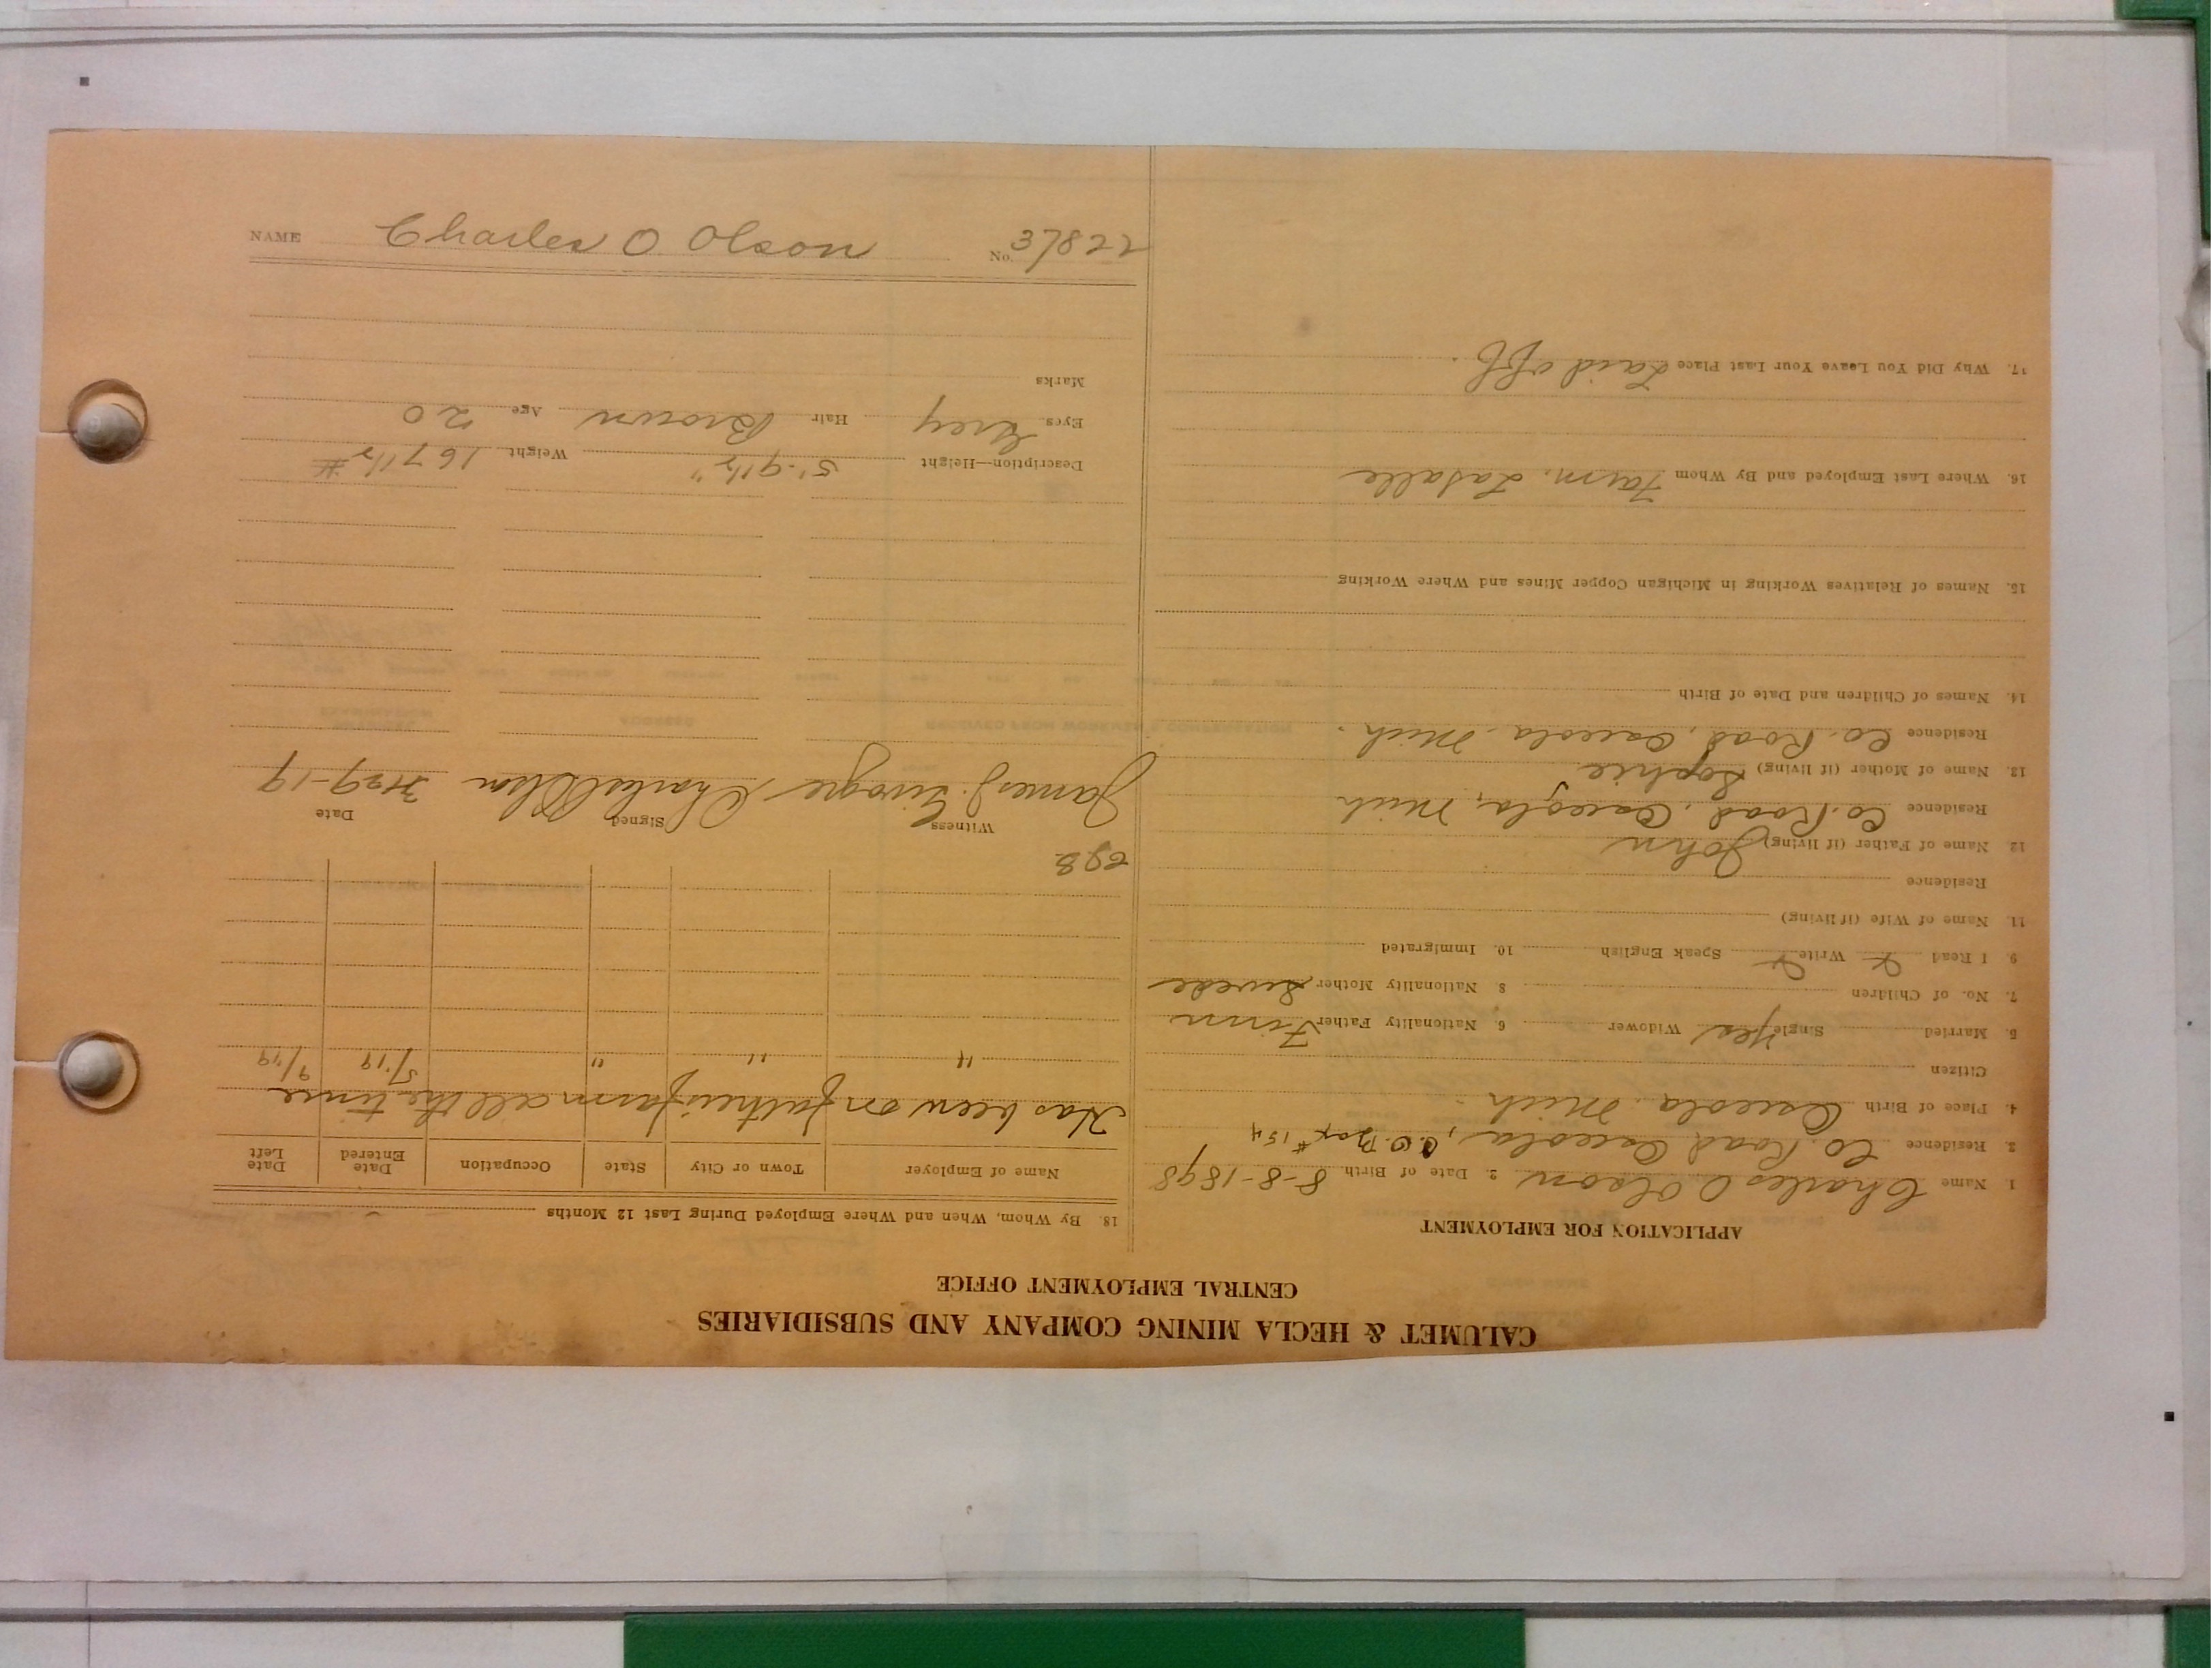 CALUMET & HECLA MINING COMPANY AND SUBSIDIARIES
CENTRAL EMPLOYMENT OFFICE
APPLICATION FOR EMPLOYMENT
1. Name Charles O Olson 2. Date of Birth 8-8-1898
3. Residence Co. Road Osceola, Box #154
4. Place of Birth Osceola, Mich.
Citizen
5. Married Single Yes Widower 6. Nationality Father Finn
7. No. of Children 8 Nationality Mother Swede
9. I Read Write Speak English 10. Immigrated
11. Name of Wife (if living)
Residence
12 Name of Father (if living) John
Residence Co. Road, Osceola, Mich
13. Name of Mother (if living) Sophie
Residence Co. Road, Osceola, Mich.
14. Names of Children and Date of Birth
15. Names of Relatives Working in Michigan Copper Mines and Where Working
16. Where Last Employed and By Whom Farm. LaSalle
17. Why Did You Leave Your Last Place Laid off.
18. By Whom, When and Where Employed During Last 12 Months
Name of Employer Town or City State Occupation Date Entered Date Left
Has been on fathers farm all the time
" " " 5/'19 9/'19
Witness Signed Date
James J. Charles Olson
Description—Height 5'-9½" Weight 167½ #
Eyes Grey Hair Brown Age 20
Marks
NAME Charles O. Olson No. 37822